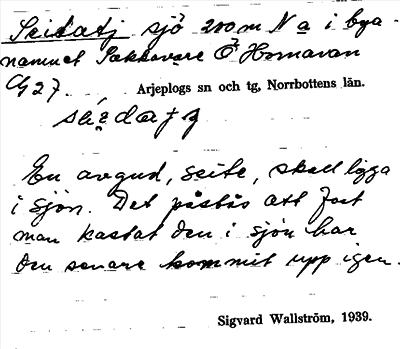 Seitatj sjö 200 m N a i bya-
namnet Sakkavare Ö Hornavan
G 27. Arjeplogs sn och tg, Norrbottens län.
En avgud, seite, skall ligga
i sjön. Det påstås att fast
man kastat den i sjön har
den senare kommit upp igen.
Sigvard Wallström, 1939.